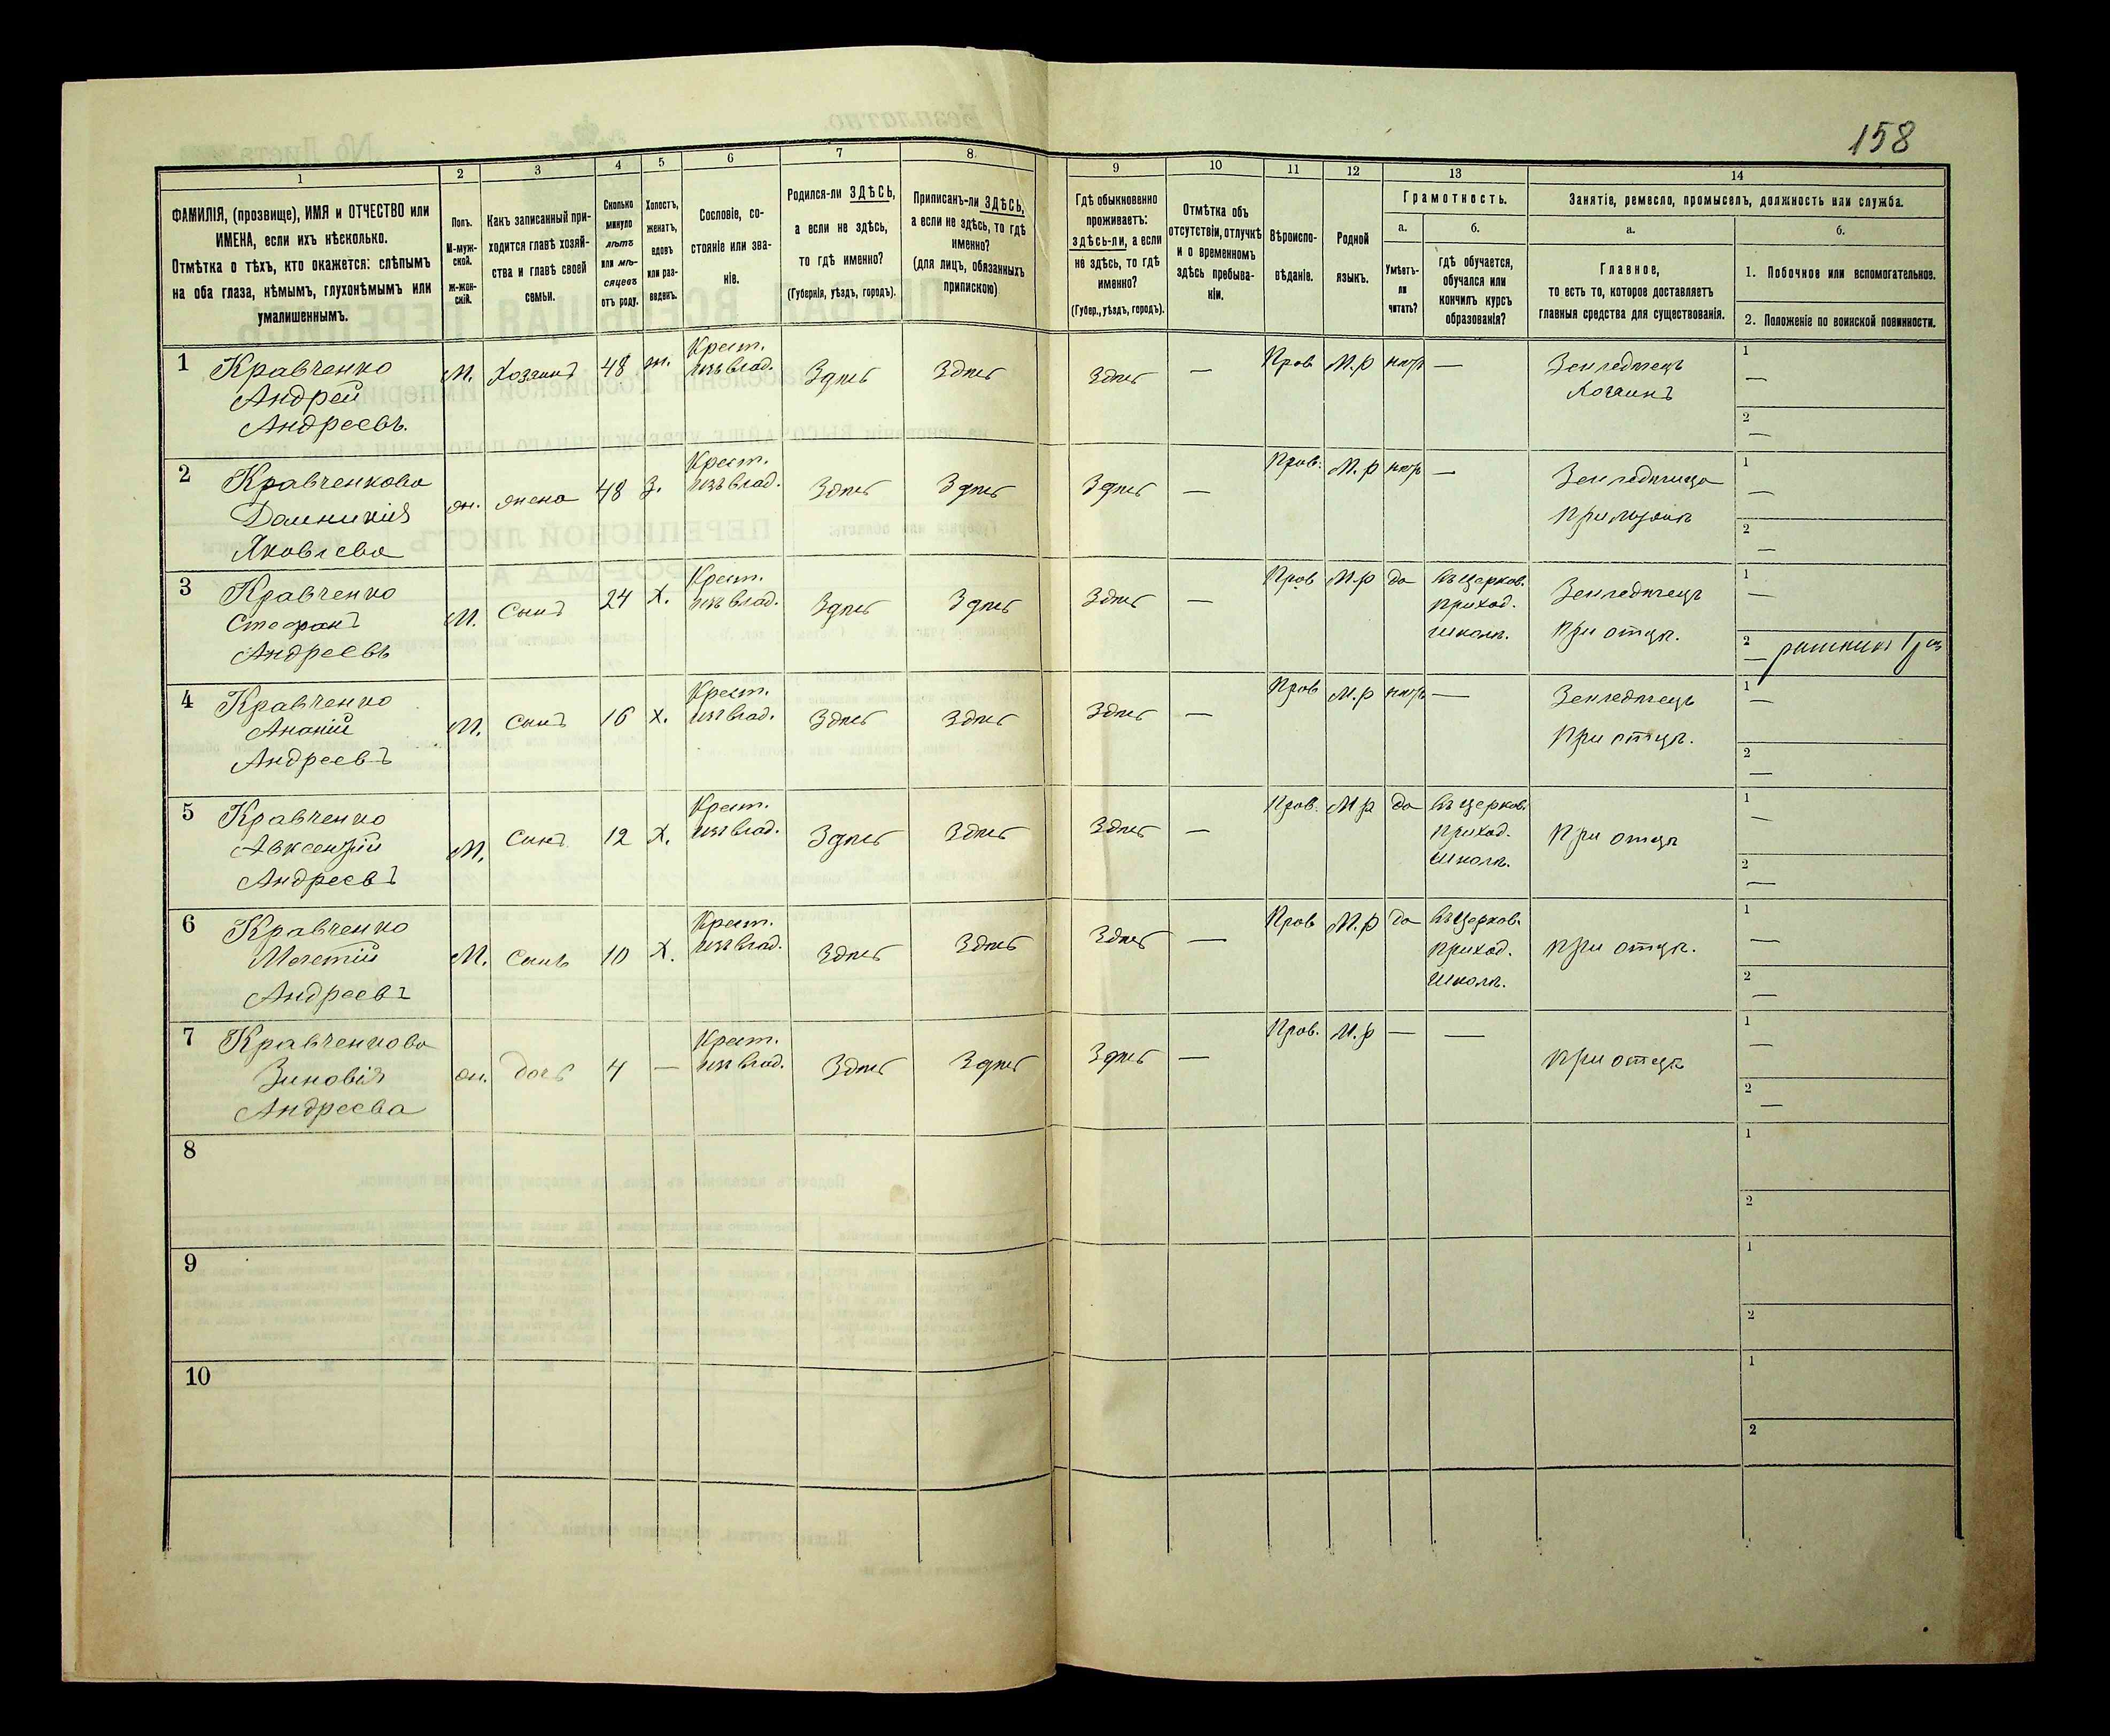 158
1
2
3
4
5
6
7
8.
9
10
11
12
13
14
ФАМИЛІЯ, (прозвище), ИМЯ и ОТЧЕСТВО или
ИМЕНА, если ихъ нѣсколько.
Отмѣтка о тѣхъ, кто окажется: слѣпымъ
на оба глаза, нѣмымъ, глухонѣмымъ или
умалишеннымъ.
Полъ.
М-муж-
ской.
ж-жен-
скій.
Какъ записанный при-
ходится главѣ хозяй-
ства и главѣ своей
семьи.
Сколько
минуло
лѣтъ
или мѣ-
сяцевъ
отъ роду.
Холостъ,
женатъ,
вдовъ
или раз-
веденъ.
Сословіе, со-
стояніе или зва-
ніе.
Родился-ли ЗДѢСЬ,
а если не здѣсь,
то гдѣ именно?
(Губернія, уѣздъ, городъ).
Приписанъ-ли ЗДѢСЬ,
а если не здѣсь, то гдѣ
именно?
(для лицъ, обязанныхъ
припискою)
Гдѣ обыкновенно
проживаетъ:
здѣсь-ли, а если
не здѣсь, то гдѣ
именно?
(Губер., уѣздъ, городъ).
Отмѣтка объ
отсутствіи, отлучкѣ
и о временномъ
здѣсь пребыва-
ніи.
Вѣроиспо-
вѣданіе.
Родной
языкъ.
Грамотность.
а.
Умѣетъ-
ли
читать?
б.
гдѣ обучается,
обучался или
кончилъ курсъ
образованія?
Занятіе, ремесло, промыселъ, должность или служба.
а.
Главное,
то есть то, которое доставляетъ
главныя средства для существованія.
б.
1. Побочное или вспомогательное.
2. Положеніе по воинской повинности.
1 Кравченко
Андрей
Андреевъ.
М. Хозяинъ 48 ж. Крест.
изъ влад. Здѣсь Здѣсь Здѣсь — Прав М.р нѣтъ — Земледѣлецъ
Хозяинъ
1
—
2
—
2 Кравченкова
Домникія
Яковлева
ж. жена 48 з. Крест.
изъ влад. Здѣсь Здѣсь Здѣсь — Прав. М.р нѣтъ — Земледѣлица
При мужѣ
1
—
2
—
3 Кравченко
Стефанъ
Андреевъ
М. Сынъ 24 Х. Крест.
изъ влад. Здѣсь Здѣсь Здѣсь — Прав М.р да Въ церков.
приход.
школѣ.
Земледѣлецъ
При отцѣ.
1
—
2
—
4 Кравченко
Ананій
Андреевъ
М. Сынъ 16 х. Крест.
изъ влад. Здѣсь Здѣсь Здѣсь — Прав М.р нѣтъ — Земледѣлецъ
При отцѣ.
1
—
2
—
5 Кравченко
Авксентій
Андреевъ
М. Сынъ 12 Х. Крест.
изъ влад. Здѣсь Здѣсь Здѣсь — Прав. М.р да Въ церков.
приход.
школѣ.
При отцѣ
1
—
2
—
6 Кравченко
Мелетій
Андреевъ
М. Сынъ 10 Х. Крест.
изъ влад. Здѣсь Здѣсь Здѣсь — Прав М.р да Въ церков.
приход.
школѣ.
При отцѣ.
1
—
2
—
7 Кравченкова
Зиновія
Андреева
ж. дочь 4 — Крест.
изъ влад. Здѣсь Здѣсь Здѣсь — Прав. М.р — — При отцѣ
1
—
2
—
8
1
2
9
1
2
10
1
2